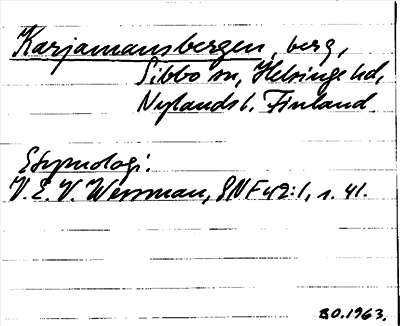 Karjamansbergen, berg,
Sibbo sn, Helsinge hd,
Nylands l. Finland.
Etymologi:
V. E. V. Wessman, SNF 42:1, s. 41.
BO.1963.